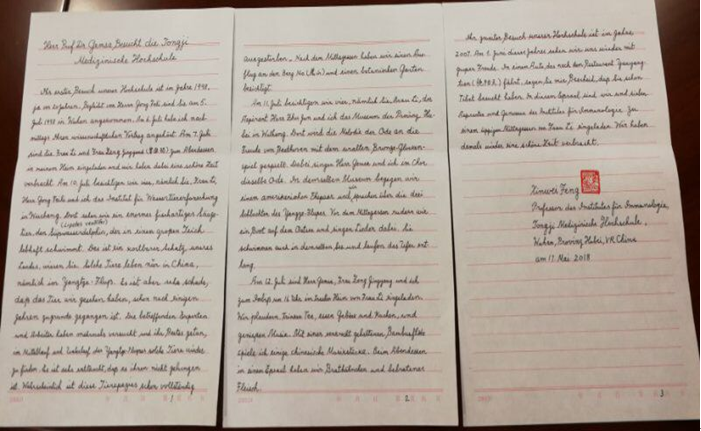 Herr Prof. Dr. Gemsa Besucht die Tongji
Medizinische Hochschule
Ihr erster Besuch unserer Hochschule ist im Jahre 1998,
ja vor 20 Jahren. Begleitet von Herrn Jörg sind Sie am 5.
Juli 1998 in Wuhan angekommen. Am 6. Juli habe ich nach-
mittags Ihren wissenschaftlichen Vortrag gedolmt. Am 7. Juli
sind Sie, Frau Li und Frau Zong Jingyang zum Abendessen
in meinem Heim eingeladen und wir haben dabei eine schöne Zeit
verbracht. Am 10. Juli besichtigen wir vier, nämlich Sie, Frau Li,
Herr Jörg und ich das Institut für Wassertiererforschung
in Wuchang. Dort sehen wir ein enormes fischartiges Säuge-
tier, den Süsswasserdelphin, der in einem großen Teich
lebhaft schwimmt. Das ist ein kostbarer Schatz unseres
Landes, wissen Sie. Solche Tiere leben nur in China,
nämlich im Yangtze-Fluss. Es ist aber sehr schade,
daß das Tier, wir gesehen haben, schon nach einigen
Jahren zugrunde gegangen ist. Die betreffenden Experten
und Arbeiter haben mehrmals versucht und ihr Bestes getan,
im Mittellauf und Unterlauf des Yangtze-Flusses solche Tiere wieder
zu finden. Es ist sehr enttäuscht, daß es ihnen nicht gelungen
ist. Wahrscheinlich ist diese Tierspezies schon vollständig
1
ausgestorben. Nach dem Mittagessen haben wir einen Aus-
flug an den Berg Mo und einen botanischen Garten
besichtigt.
Am 11. Juli besichtigen wir vier, nämlich Sie, Frau Li, der
Doktorand Herr Zhu Jun und ich das Museum der Provinz Hu-
bei in Wuchang. Dort wird die Melodie der Ode an die
Freude von Beethoven mit dem uralten Bronze-Glocken-
spiel gespielt. Dabei singen Herr Gemsa und ich im Chor
dieselbe Ode. In demselben Museum begegnen wir
einem amerikanischen Ehepaar und sprechen über die drei
Schluchten des Yangtze-Flusses. Vor dem Mittagessen rudern wir
ein Boot auf dem Ostsee und singen Lieder dabei. Sie
schwimmen auch in demselben See und laufen das Ufer ent-
lang.
Am 12. Juli sind Herr Gemsa, Frau Zong Jingyang und ich
zum Besuch um 16 Uhr im Hause von Frau Li eingeladen.
Wir plaudern, trinken Tee, essen Gebäck und Kuchen, und
geniessen Musik. Mit einer Bambusflöte
spiele ich einige chinesische Musikstücke. Beim Abendessen
in einem Speisesaal haben wir Brathühnchen und gebratenes
Fleisch.
2
Ihr zweiter Besuch unserer Hochschule ist im Jahre
2007. Am 1. Juni dieses Jahres sehen wir uns wieder mit
großer Freude. In einem Auto, das nach dem Restaurant
fährt, sagen Sie mir Bescheid, daß Sie schon
Tibet besucht haben. In diesem Speisesaal sind wir und andere
Doktoranden und Genossen des Institutes für Immunologie zu
einem üppigen Mittagessen von Frau Li eingeladen. Wir haben
damals wieder eine schöne Zeit verbracht.
Xinwei Feng
Professor des Institutes für Immunologie,
Tongji Medizinische Hochschule,
Wuhan, Provinz Hubei, VR China
am 17. Mai 2018
3